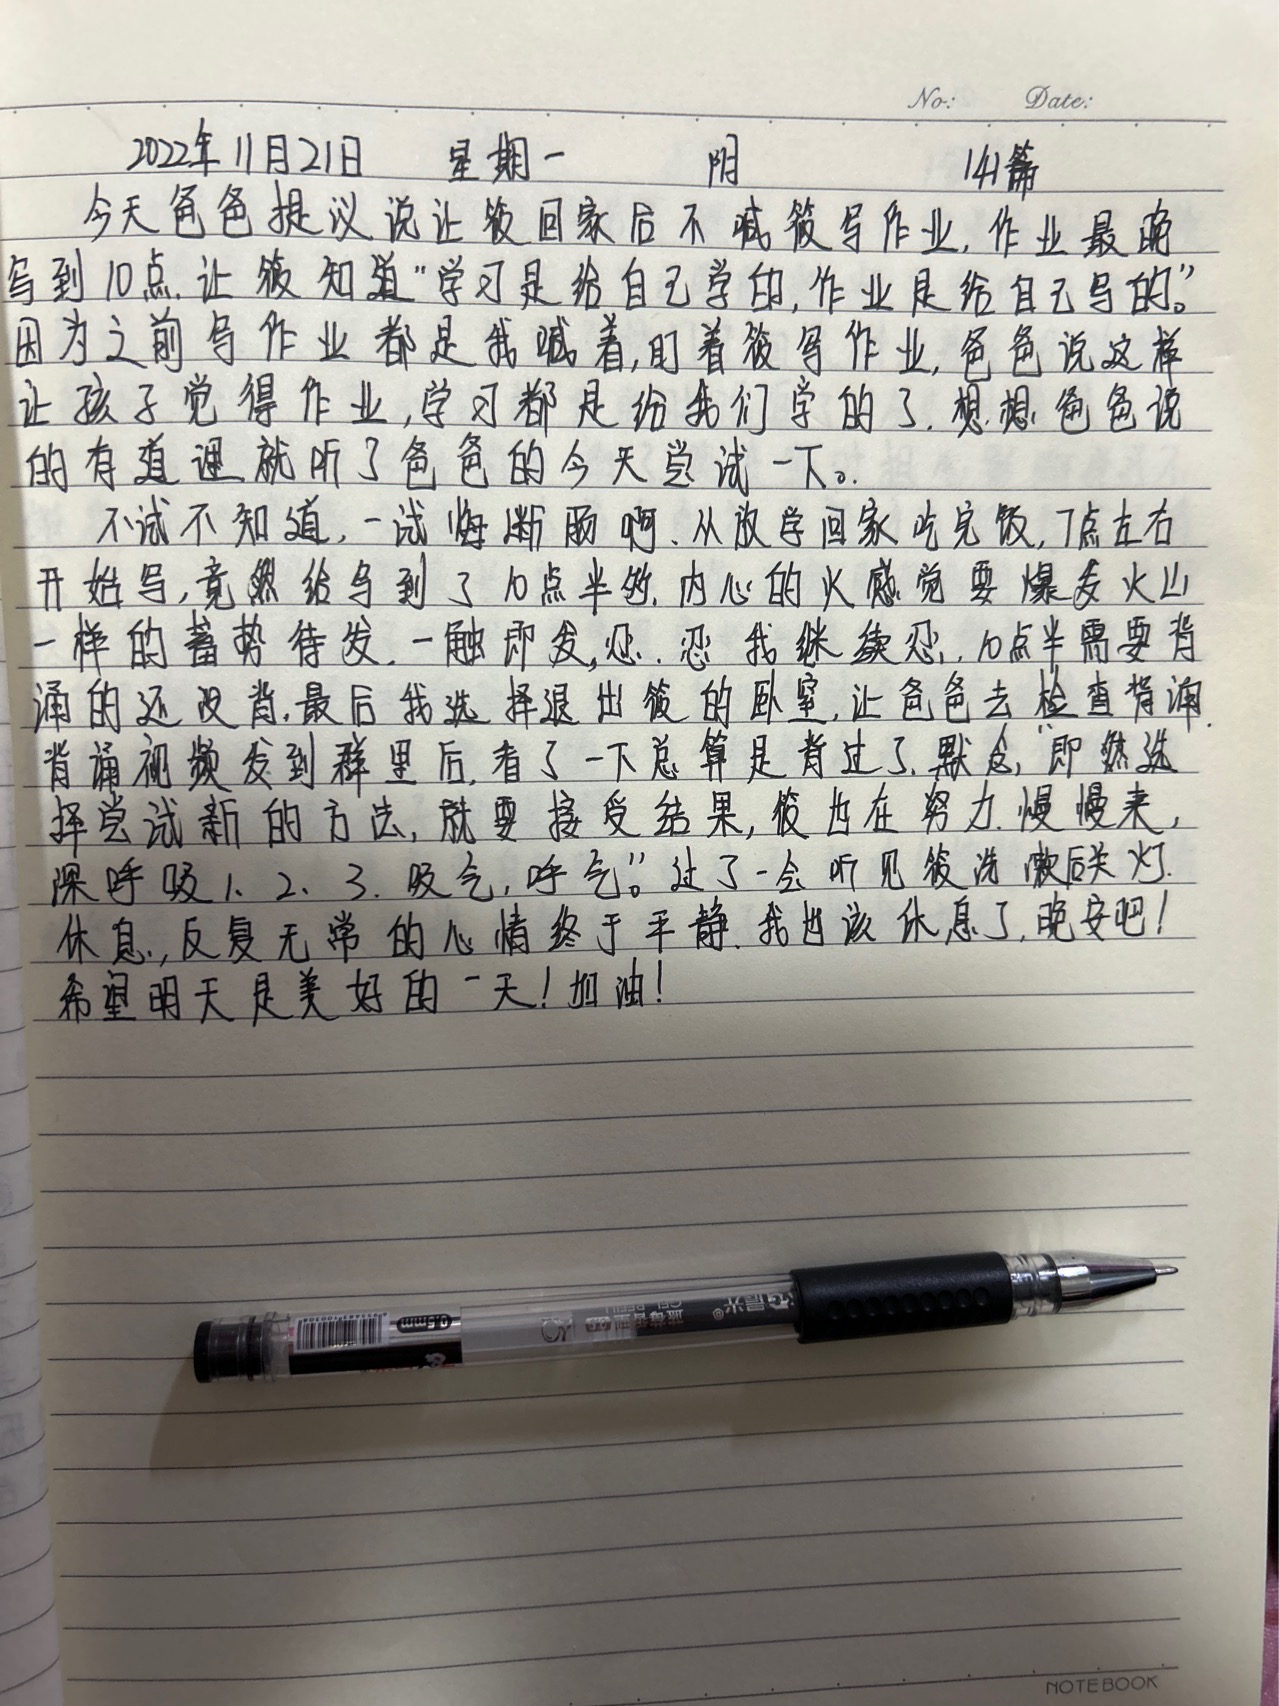 No: Date:
2022年11月21日 星期一 阴 141篇
今天爸爸提议说让筱回家后不喊筱写作业,作业最晚
写到10点.让筱知道"学习是给自己学的,作业是给自己写的"。
因为之前写作业都是我喊着,盯着筱写作业,爸爸说这样
让孩子觉得作业,学习都是给我们学的了.想想爸爸说
的有道理就听了爸爸的今天尝试一下。
不试不知道,一试悔断肠啊.从放学回家吃完饭,7点左右
开始写,竟然给写到了10点半多.内心的火感觉要爆发火山
一样的蓄势待发.一触即发,忍.忍我继续忍.10点半需要背
诵的还没背.最后我选择退出筱的卧室,让爸爸去检查背诵.
背诵视频发到群里后,看了一下总算是背过了.默念,"即然选
择尝试新的方法,就要接受结果,筱也在努力.慢慢来,
深呼吸1、2、3.吸气,呼气"。过了一会听见筱洗漱后关灯.
休息,反复无常的心情终于平静.我也该休息了,晚安吧!
希望明天是美好的一天!加油!
晨光®
GEL PEN
0.5mm
NOTEBOOK